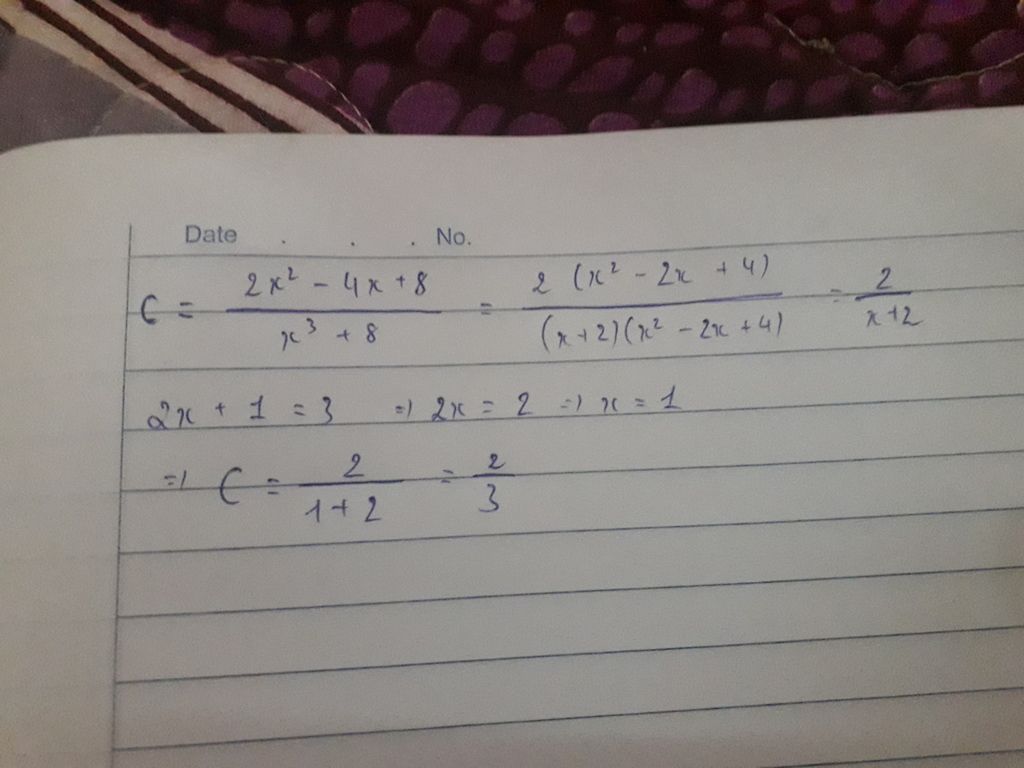 Date . . . No.
C = (2x² - 4x + 8)/(x³ + 8) = 2(x² - 2x + 4)/((x+2)(x² - 2x + 4)) = 2/(x+2)
2x + 1 = 3 => 2x = 2 => x = 1
=> C = 2/(1+2) = 2/3